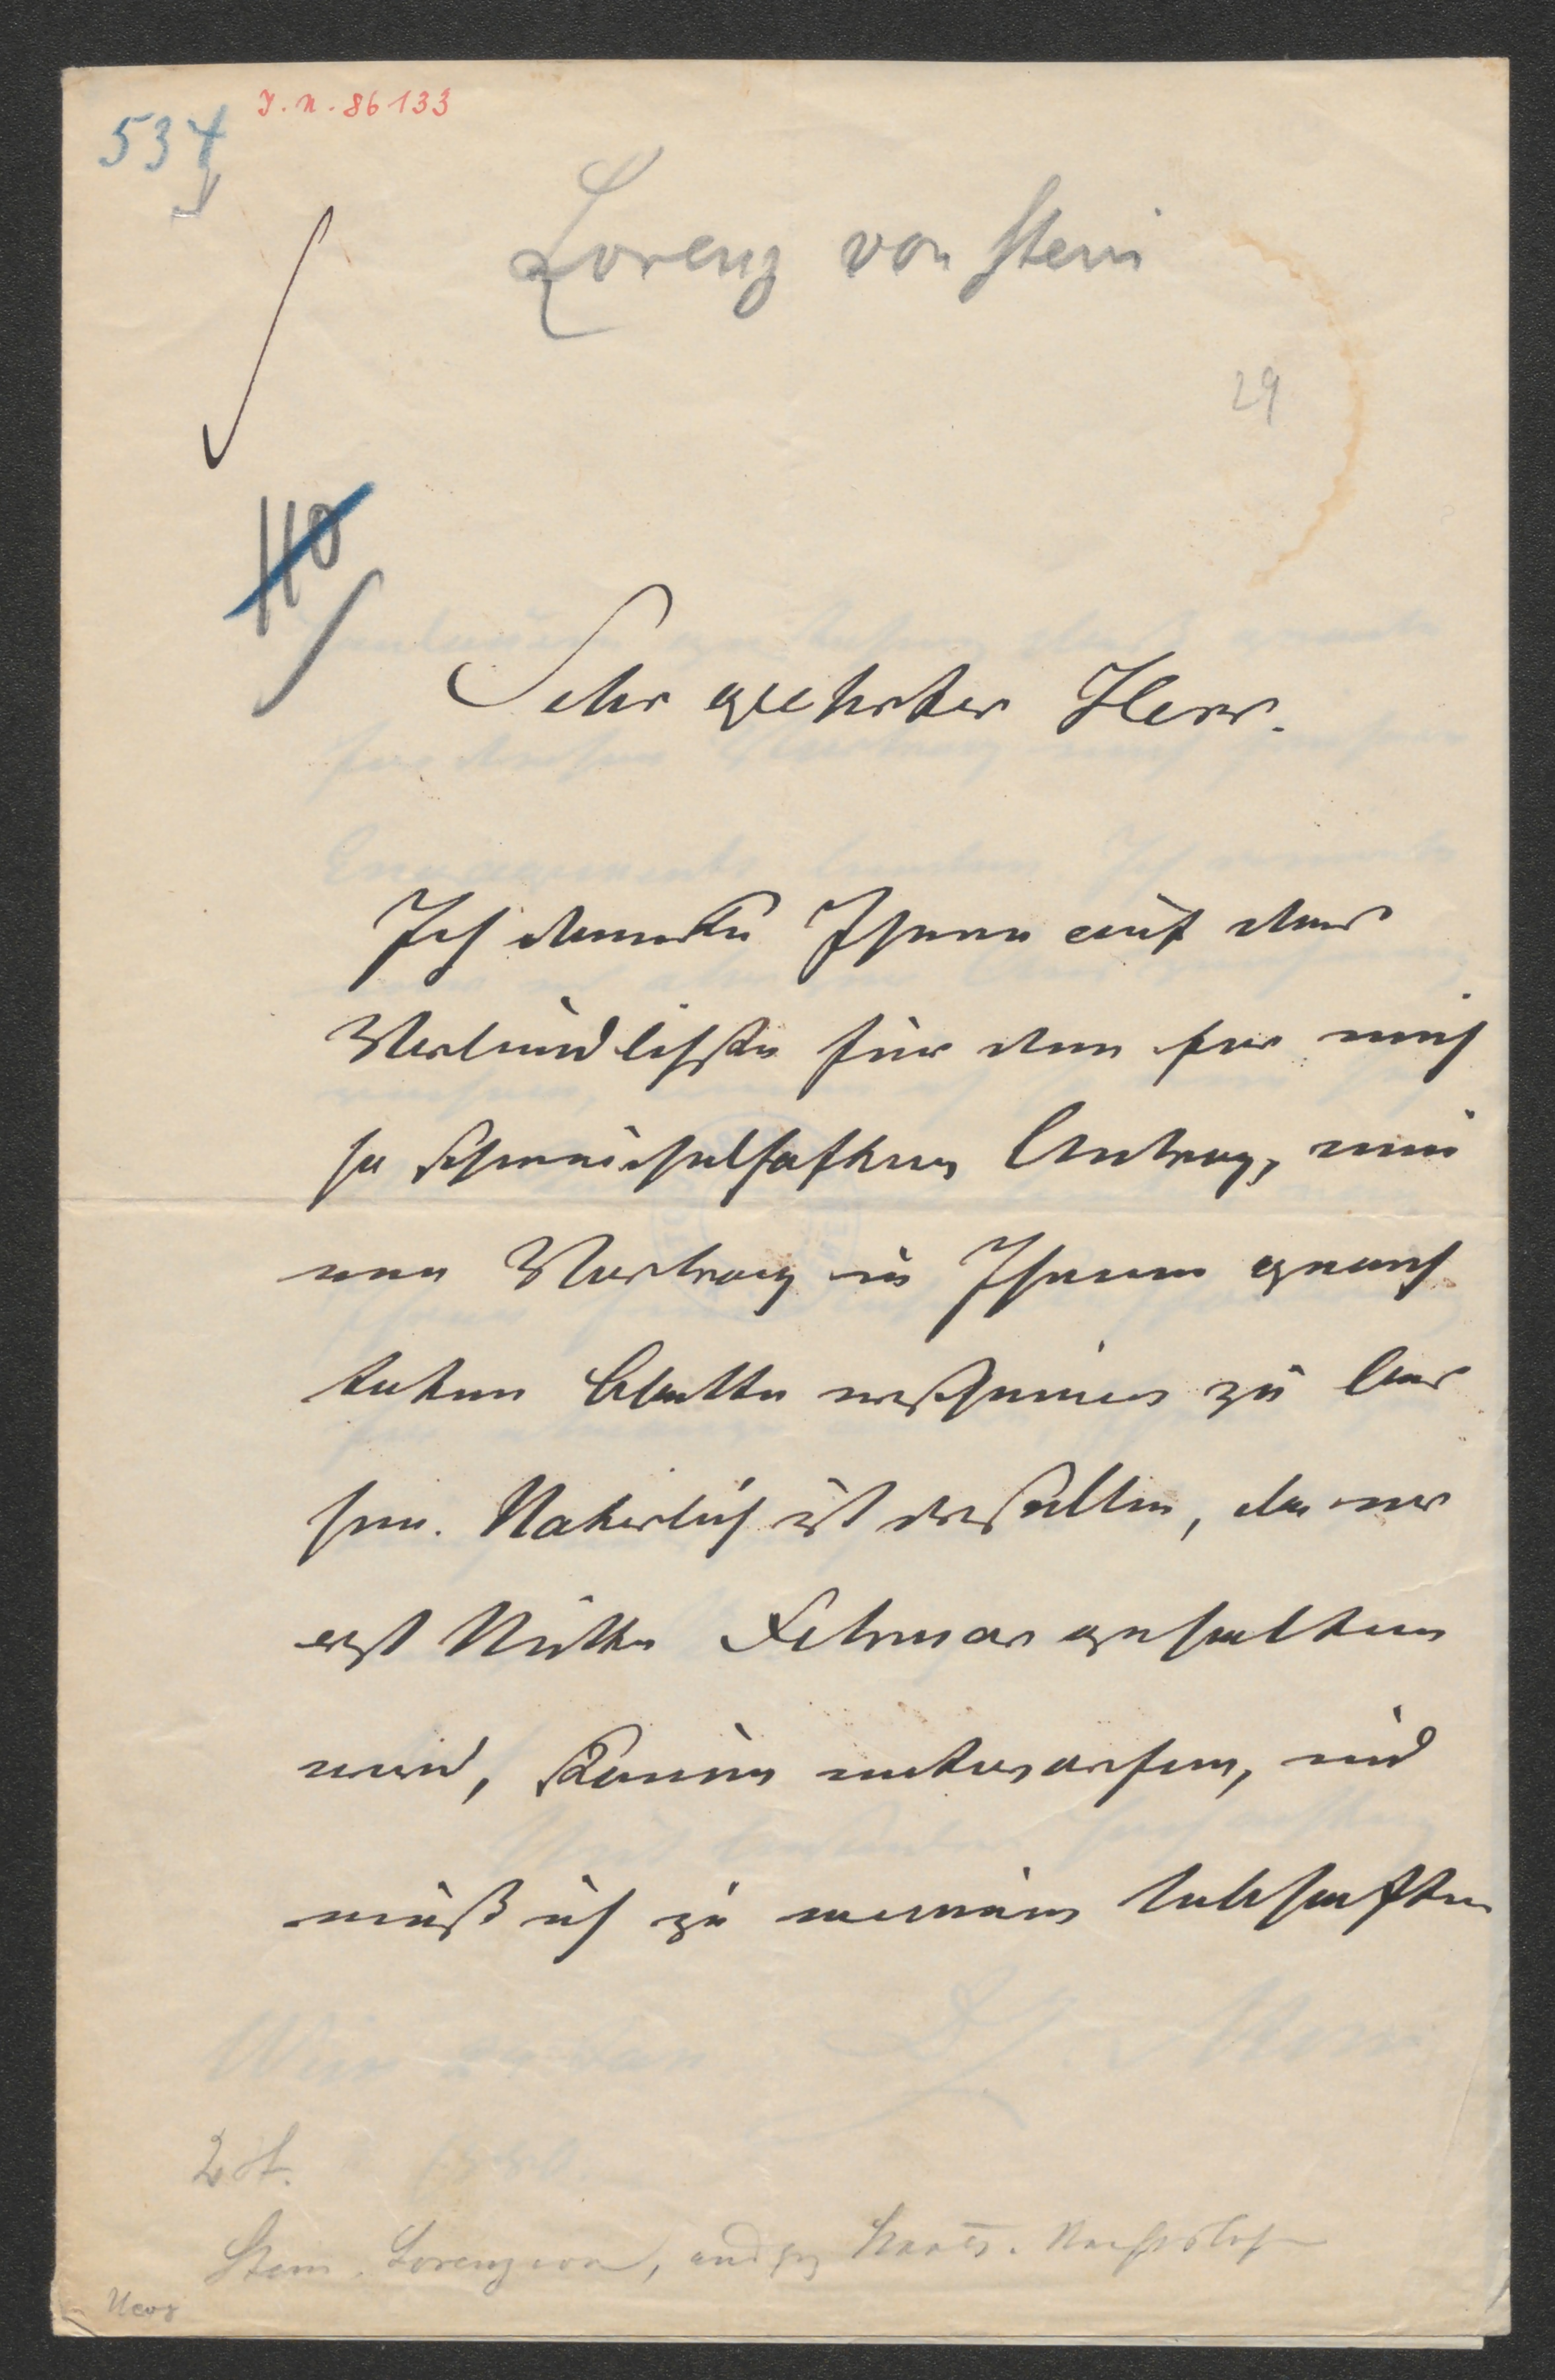 534
J. N. 86133
Lorenz von Stein
29
110
Sehr geehrter Herr.
Ich danke Ihnen auf das
Verbindlichste für den für mich
so schmeichelhaften Antrag, mei
nen Vortrag in Ihrem geach
teten Blatte erscheinen zu las
sen. Natürlich ist derselbe, da er
erst Mitte Februar gehalten
wird, kaum entworfen, und
muß ich zu meinem lebhaften
2 Bl.
Stein, Lorenz von,